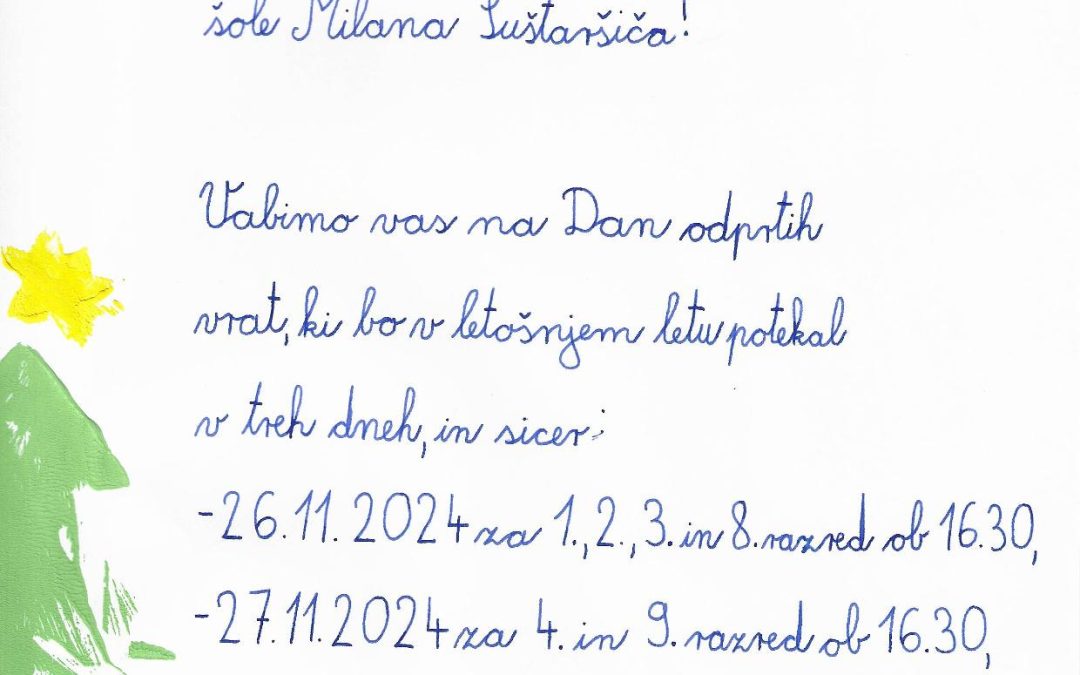 šole Milana Šuštaršiča!
Vabimo vas na Dan odprtih
vrat, ki bo v letošnjem letu potekal
v treh dneh, in sicer:
-26.11.2024 za 1., 2., 3. in 8. razred ob 16.30,
-27.11.2024 za 4. in 9. razred ob 16.30,